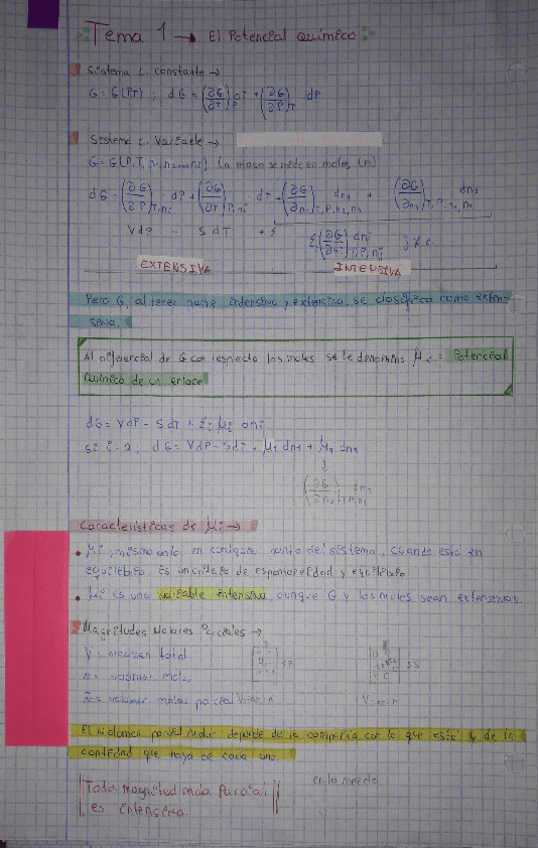 Tema 1 → El Potencial Químico
Sistema C. Constante →
G = G(P,T) ; dG = (∂G/∂T)P dT + (∂G/∂P)T dP
Sistema C. Variable →
G = G(P, T, n₁, n₂ ... nᵢ) (la masa se mide en moles (n))
dG = (∂G/∂P)T,nᵢ dP + (∂G/∂T)P,nᵢ dT + (∂G/∂n₁)T,P,n₂,n₃ dn₁ +
VdP - SdT + Σ
EXTENSIVA INTENSIVA
Pero G, al tener parte intensiva y extensiva, se clasifica como exten-
siva.
Al diferencial de G con respecto los moles se le denomina μᵢ = Potencial
Químico de un enlace
dG = VdP - SdT + Σᵢ μᵢ dnᵢ
Si i = 2; dG = VdP - SdT + μ₁ dn₁ + μ₂ dn₂
Características de μᵢ →
• μᵢ, mismo valor en cualquier punto del sistema, cuando está en
equilibrio. Es un criterio de espontaneidad y equilibrio.
• μᵢ es una variable intensiva, aunque G y los moles sean extensivos.
Magnitudes Molares Parciales →
V = volumen total
= volumen molar
= volumen molar parcial
El volumen parcial molar depende de la compañía con la que esté y de la
cantidad que haya de cada uno.
en la mezcla
Toda magnitud molar parcial
es intensiva.